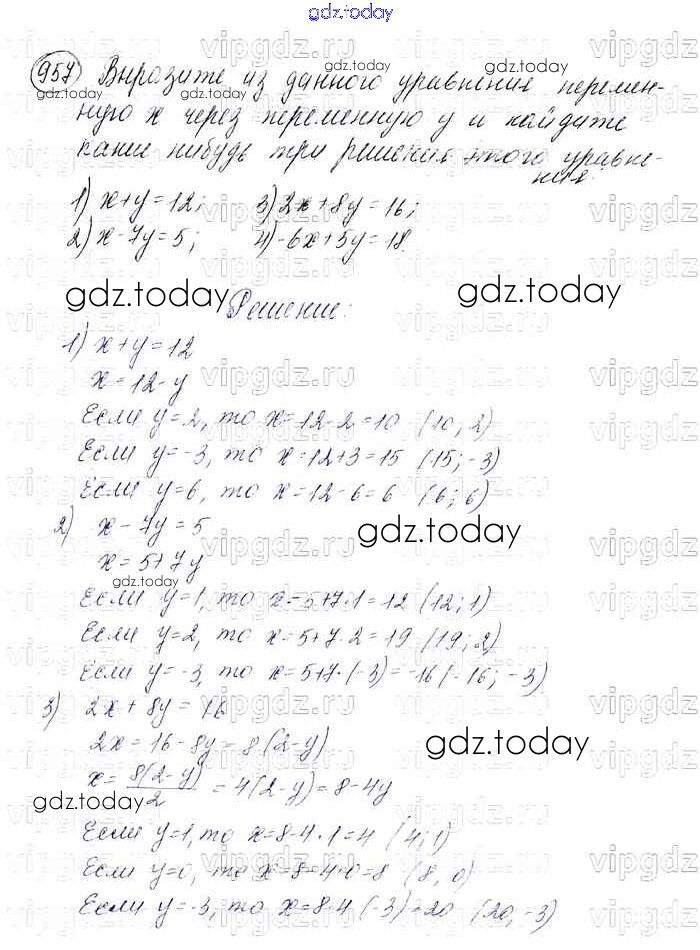 gdz.today
957) Выразите из данного уравнения перемен-
ную x через переменную y и найдите
какие нибудь три решения этого уравне-
ния:
1) x+y=12; 3) 2x+8y=16;
2) x-7y=5; 4) -6x+5y=18.
gdz.today Решение: gdz.today
1) x+y=12
x=12-y
Если y=2, то x=12-2=10 (10; 2)
Если y=-3, то x=12+3=15 (15; -3)
Если y=6, то x=12-6=6 (6; 6)
2) x-7y=5
gdz.today
x=5+7y
gdz.today
Если y=1, то x=5+7·1=12 (12; 1)
Если y=2, то x=5+7·2=19 (19; 2)
Если y=-3, то x=5+7·(-3)=-16 (-16; -3)
3) 2x+8y=16
2x=16-8y=8(2-y)
gdz.today
x=8(2-y)/2=4(2-y)=8-4y
gdz.today
Если y=1, то x=8-4·1=4 (4; 1)
Если y=0, то x=8-4·0=8 (8; 0)
Если y=-3, то x=8-4(-3)=20 (20; -3)